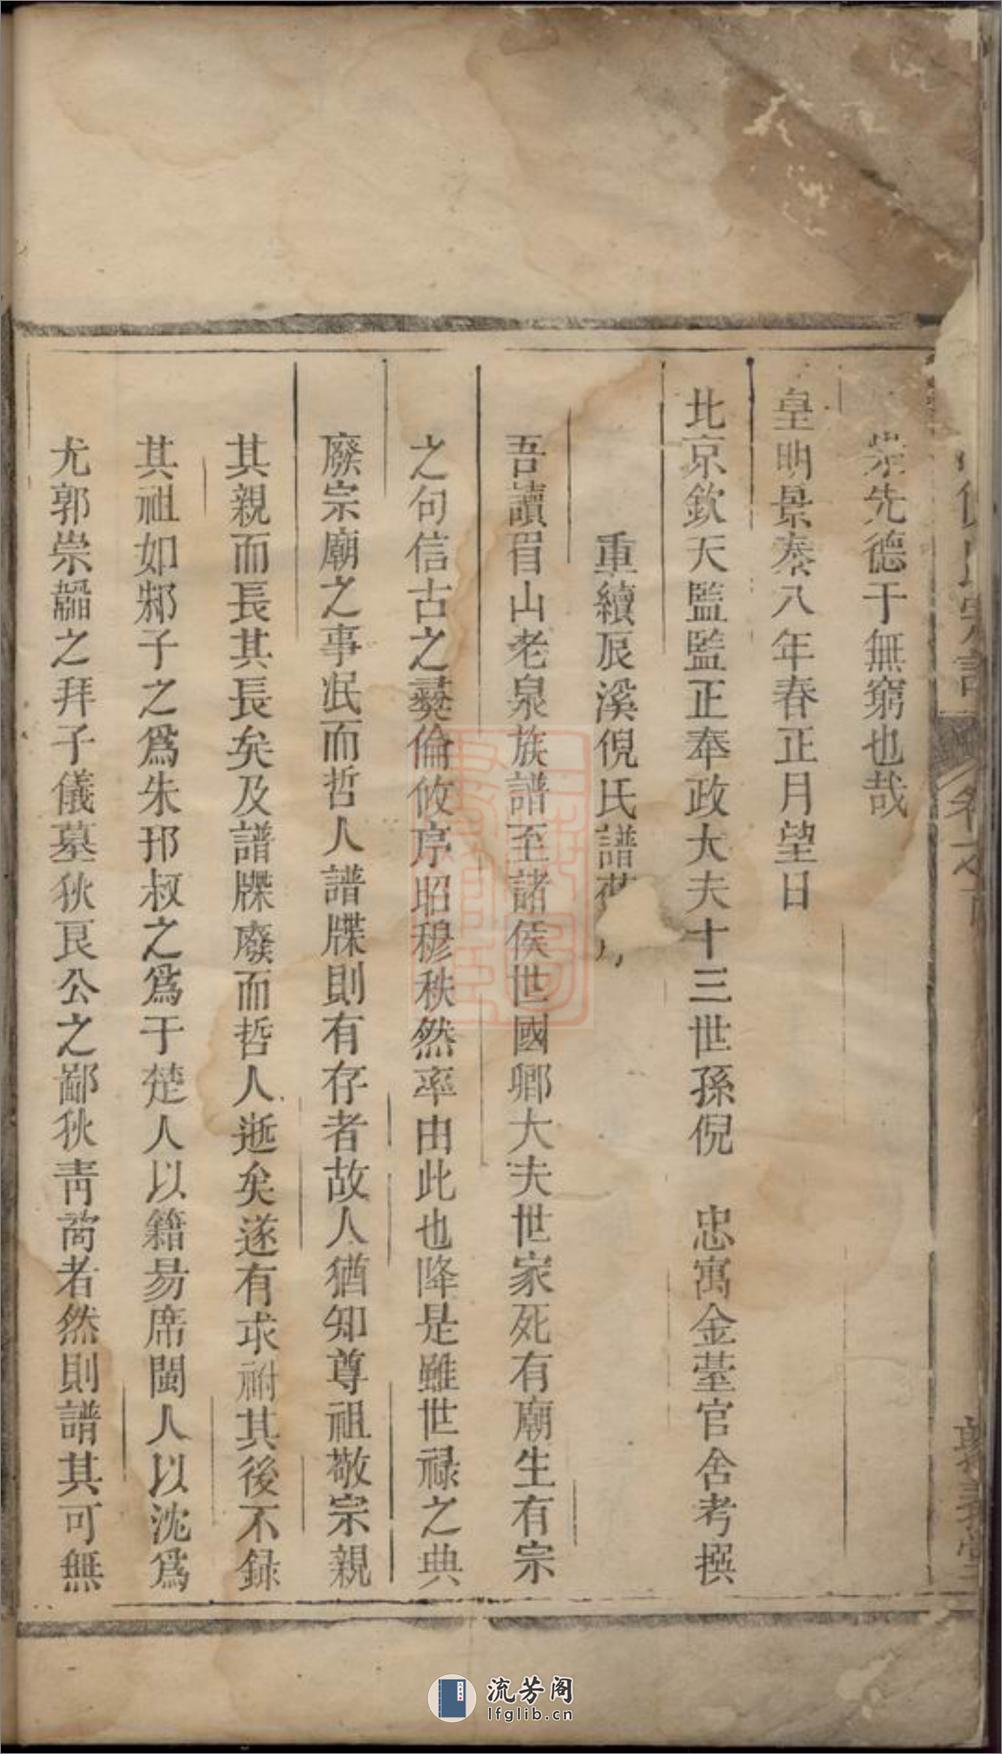 崇先德于無窮也哉
皇明景泰八年春正月望日
北京欽天監監正奉政大夫十三世孫倪　忠寓金臺官舍考撰
重續辰溪倪氏譜
吾讀眉山老泉族譜至諸侯世國卿大夫世家死有廟生有宗
之句信古之彝倫攸序昭穆秩然率由此也降是雖世祿之典
廢宗廟之事泯而哲人譜牒則有存者故人猶知尊祖敬宗親
其親而長其長矣及譜牒廢而哲人逝矣遂有求祔其後不録
其祖如郯子之爲朱邘叔之爲于楚人以籍易席閩人以沈爲
尤郭崇韜之拜子儀墓狄良公之鄙狄青啇者然則譜其可無
流芳阁
lfglib.cn